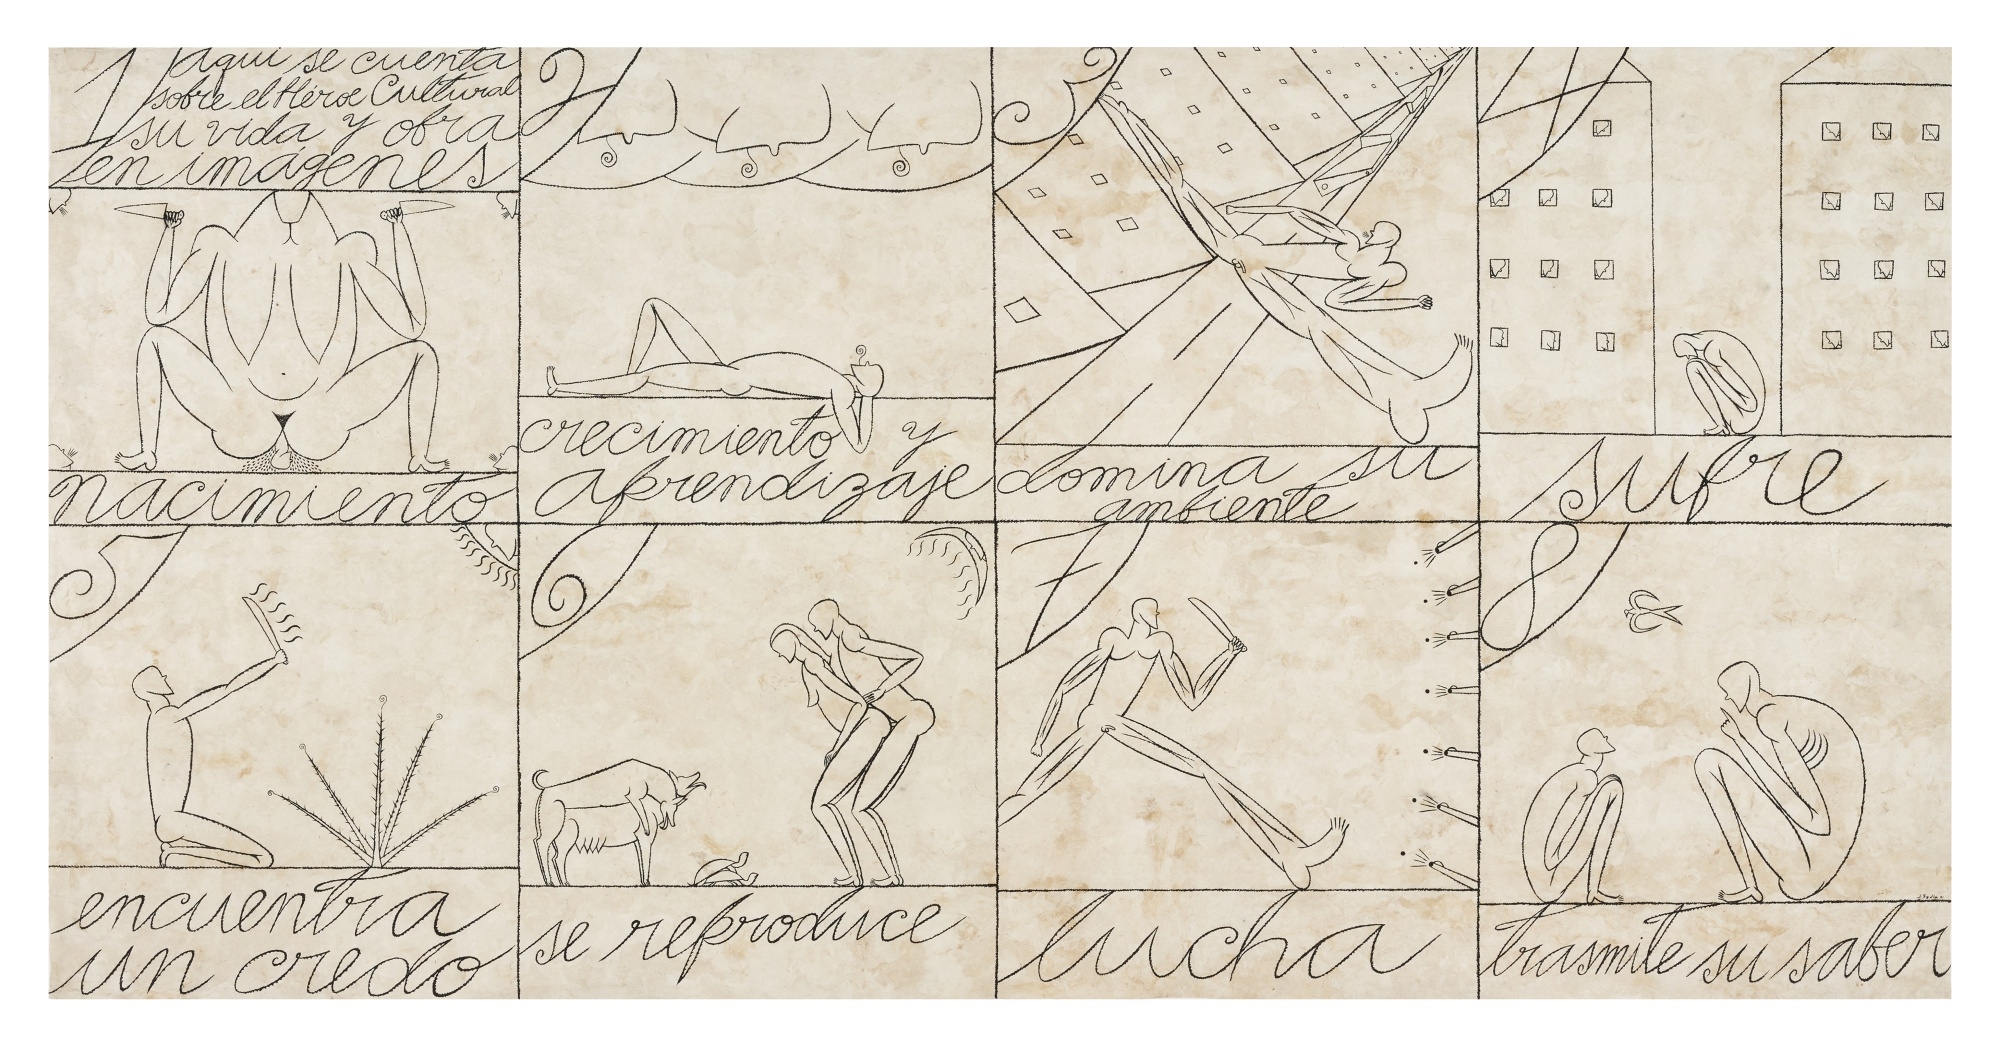 1
Aquí se cuenta
sobre el Héroe Cultural
su vida y obra
en imágenes
nacimiento
2
crecimiento y
aprendizaje
3
domina su
ambiente
4
sufre
5
encuentra
un credo
6
se reproduce
7
lucha
8
trasmite su saber